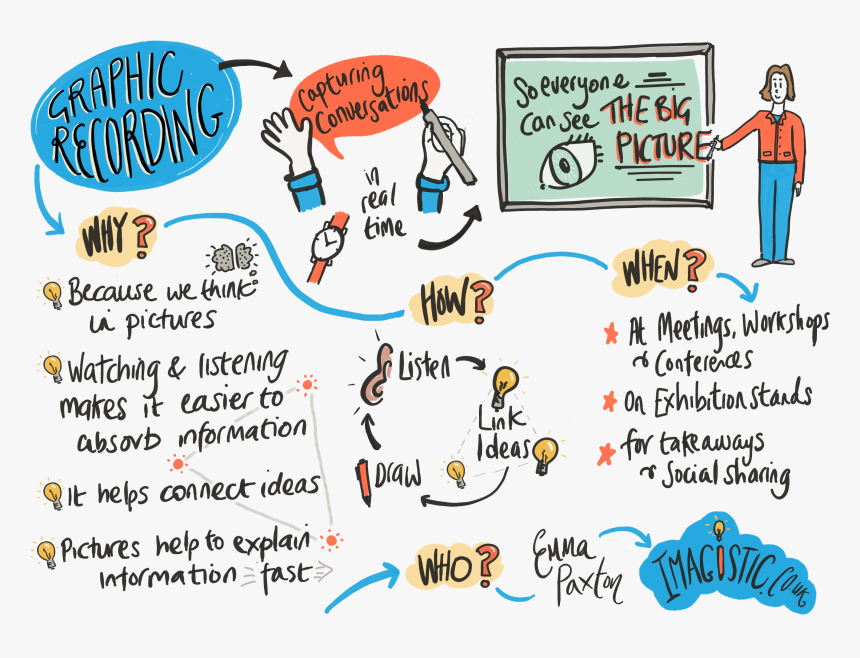 GRAPHIC
RECORDING
Capturing
Conversations
in
real
time
So everyone
can see THE BIG
PICTURE
WHY?
Because we think
in pictures
Watching & listening
makes it easier to
absorb information
It helps connect ideas
Pictures help to explain
information fast
HOW?
Listen
Link
Ideas
Draw
WHEN?
At Meetings, Workshops
& Conferences
On Exhibition Stands
for takeaways
& Social sharing
WHO?
Emma
Paxton
IMAGISTIC.co.uk